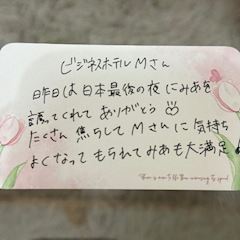 ビジネスホテル Mさん
昨日は日本最後の夜にみあを
誘ってくれて ありがとう♡
たくさん 焦らして Mさんに 気持ち
よくなって もられて みあも 大満足